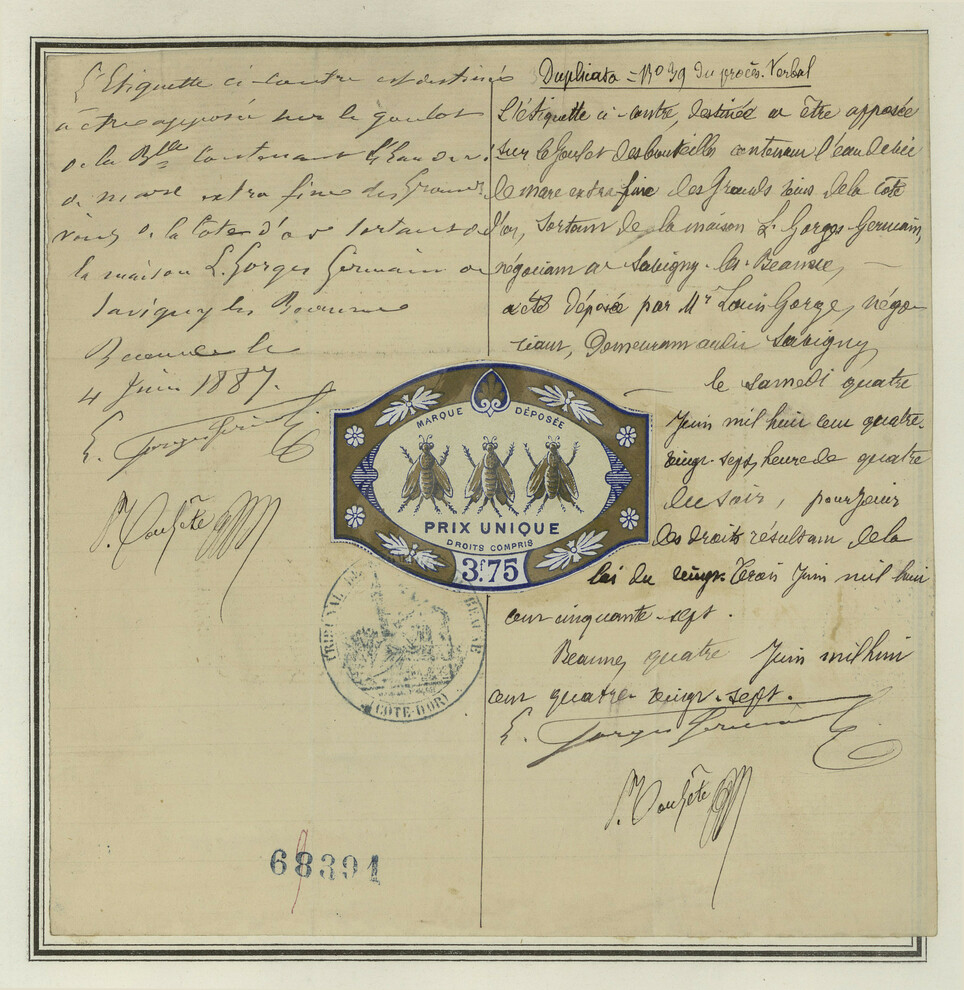 L'Etiquette ci-contre est destinée
à être apposée sur le goulot
de la Blle contenant l'Eau de vie
de marc extra fine des Grands
vins de la Côte d'or sortant de
la maison L. Gorges Germain de
Savigny les Beaune
Beaune le
4 Juin 1887.
L. Gorges Germain
Duplicata = No 39 du procès-Verbal
L'étiquette ci-contre, destinée à être apposée
sur le Goulot des bouteilles contenant l'eau de vie
de marc extra fine des Grands vins de la côte
d'or, sortant de la maison L. Gorges-Germain,
négociant à Savigny-les-Beaune,
a été déposée par Mr Louis Gorges, négo-
ciant, demeurant audit Savigny
le samedi quatre
Juin mil huit cent quatre-
vingt-sept, heure de quatre
du soir, pour jouir
des droits résultant de la
loi du vingt-trois Juin mil huit
cent cinquante-sept.
Beaune, quatre Juin mil huit
cent quatre-vingt-sept.
L. Gorges Germain
MARQUE DÉPOSÉE
PRIX UNIQUE
DROITS COMPRIS
3f.75
TRIBUNAL DE BEAUNE
(CÔTE-D'OR)
68391